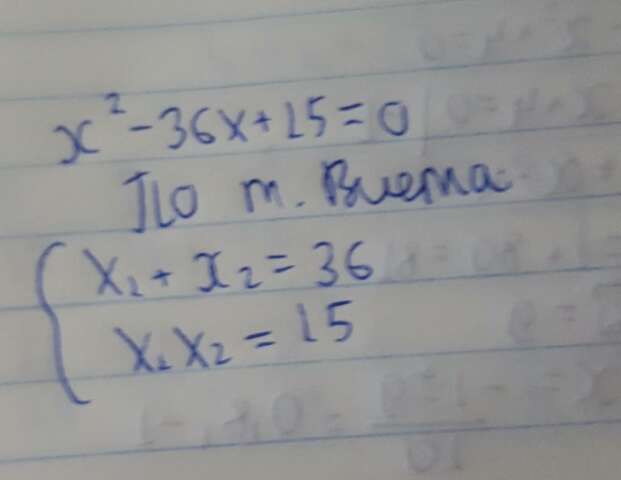 x² - 36x + 15 = 0
По т. Виета
{ x₁ + x₂ = 36
x₁x₂ = 15